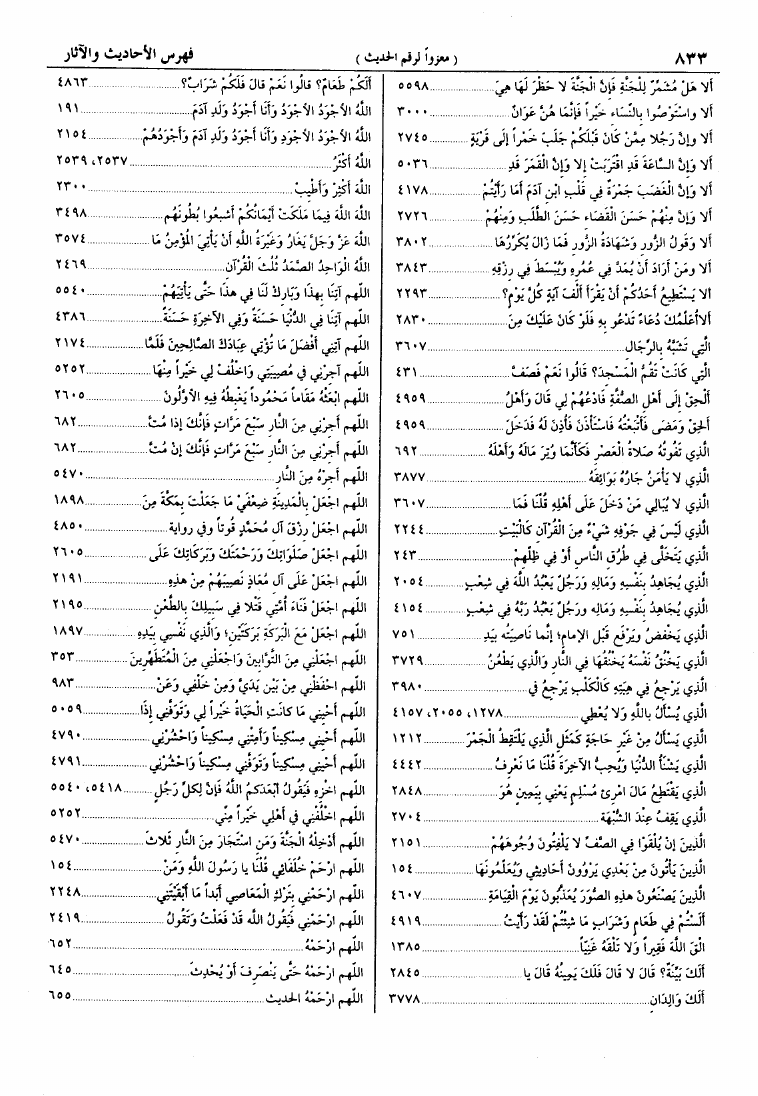 ٨٣٣
( معزواً لرقم الحديث )
فهرس الأحاديث والآثار
أَلا هَلْ مُشَمِّرٌ لِلْجَنَّةِ فَإِنَّ الْجَنَّةَ لا خَطَرَ لَهَا هِيَ ٥٥٩٨
أَلا واسْتَوْصُوا بِالنِّسَاءِ خَيْراً فَإِنَّمَا هُنَّ عَوَانٌ ٣٠٠٠
أَلا وإِنَّ رَجُلا مِمَّنْ كَانَ قَبْلَكُمْ جَلَبَ خَمْراً إِلَى قَرْيَةٍ ٢٧٤٥
أَلا وَإِنَّ السَّاعَةَ قَدِ اقْتَرَبَتْ إلا وَإِنَّ الْقَمَرَ قَدِ ٥٠٣٦
أَلا وَإِنَّ الْغَضَبَ جَمْرَةٌ فِي قَلْبِ ابْنِ آدَمَ أَمَا رَأَيْتُمْ ٤١٧٨
أَلا وَإِنَّ مِنْهُمْ حَسَنَ الْقَضَاءِ حَسَنَ الطَّلَبِ وَمِنْهُمْ ٢٧٢٦
أَلا وَقَوْلُ الزُّورِ وَشَهَادَةُ الزُّورِ فَمَا زَالَ يُكَرِّرُهَا ٣٨٠٢
أَلا ومَنْ أَرَادَ أَنْ يُمَدَّ فِي عُمُرِهِ وَيُبْسَطَ فِي رِزْقِهِ ٣٨٤٣
أَلا يَسْتَطِيعُ أَحَدُكُمْ أَنْ يَقْرَأَ أَلْفَ آيَةٍ كُلَّ يَوْمٍ؟ ٢٢٩٣
أَلاأُعَلِّمُكَ دُعَاءً تَدْعُو بِهِ فَلَوْ كَانَ عَلَيْكَ مِنَ ٢٨٣٠
الَّتِي تَشَبَّهُ بِالرِّجَالِ ٣٦٠٧
الَّتِي كَانَتْ تَقُمُّ الْمَسْجِدَ؟ قَالُوا نَعَمْ فَصَفَّ ٤٣١
أَلْحِقْ إِلَى أَهْلِ الصُّفَّةِ فَادْعُهُمْ لِي قَالَ وَأَهْلُ ٤٩٥٩
الحِقْ وَمَضَى فَأَتْبَعْتُهُ فَاسْتَأْذَنَ فَأَذِنَ لَهُ فَدَخَلَ ٤٩٥٩
الَّذِي تَفُوتُهُ صَلاةُ الْعَصْرِ فَكَأَنَّمَا وُتِرَ مَالَهُ وَأَهْلَهُ ٦٩٢
الَّذِي لا يَأْمَنُ جَارُهُ بَوَائِقَهُ ٣٨٧٧
الَّذِي لا يُبَالِي مَنْ دَخَلَ عَلَى أَهْلِهِ قُلْنَا فَمَا ٣٦٠٧
الَّذِي لَيْسَ فِي جَوْفِهِ شَيْءٌ مِنَ الْقُرْآنِ كَالْبَيْتِ ٢٢٤٤
الَّذِي يَتَخَلَّى فِي طُرُقِ النَّاسِ أَوْ فِي ظِلِّهِمْ ٢٤٣
الَّذِي يُجَاهِدُ بِنَفْسِهِ وَمَالِهِ وَرَجُلٌ يَعْبُدُ اللَّهَ فِي شِعْبٍ ٢٠٥٤
الَّذِي يُجَاهِدُ بِنَفْسِهِ وَمَالِهِ ورَجُلٌ يَعْبُدُ رَبَّهُ فِي شِعْبٍ ٤١٥٤
الَّذِي يَخْفِضُ وَيَرْفَعُ قَبْلَ الإِمامِ؛ إِنَّمَا نَاصِيَتُهُ بِيَدِ ٧٥١
الَّذِي يَخْنُقُ نَفْسَهُ يَخْنُقُهَا فِي النَّارِ وَالَّذِي يَطْعُنُ ٣٧٢٩
الَّذِي يَرْجِعُ فِي هِبَتِهِ كَالْكَلْبِ يَرْجِعُ فِي ٣٩٨٠
الَّذِي يُسْأَلُ بِاللَّهِ وَلا يُعْطِي ١٢٧٨، ٢٠٥٥، ٤١٥٧
الَّذِي يَسْأَلُ مِنْ غَيْرِ حَاجَةٍ كَمَثَلِ الَّذِي يَلْتَقِطُ الْجَمْرَ ١٢١٢
الَّذِي يَشْنَأُ الدُّنْيَا وَيُحِبُّ الآخِرَةَ قُلْنَا مَا نَعْرِفُ ٤٤٤٢
الَّذِي يَقْتَطِعُ مَالَ امْرِئٍ مُسْلِمٍ يَعْنِي بِيَمِينٍ هُوَ ٢٨٤٨
الَّذِي يَقِفُ عِنْدَ الشُّبْهَةِ ٢٧٠٤
الَّذِينَ إِنْ يُلْقَوْا فِي الصَّفِّ لا يَلْفِتُونَ وُجُوهَهُمْ ٢١٥١
الَّذِينَ يَأْتُونَ مِنْ بَعْدِي يَرْوُونَ أَحَادِيثِي وَيُعَلِّمُونَهَا ١٥٤
الَّذِينَ يَصْنَعُونَ هذِهِ الصُّوَرَ يُعَذَّبُونَ يَوْمَ الْقِيَامَةِ ٤٦٠٧
أَلَسْتُمْ فِي طَعَامٍ وَشَرَابٍ مَا شِئْتُمْ لَقَدْ رَأَيْتُ ٤٩١٩
الْقَ اللَّهَ فَقِيراً وَلا تَلْقَهُ غَنِيّاً ١٣٨٥
أَلَكَ بَيِّنَةٌ؟ قَالَ لا قَالَ فَلَكَ يَمِينُهُ قَالَ يا ٢٨٤٥
أَلَكَ وَالِدَانِ ٣٧٧٨
أَلَكُمْ طَعَامٌ؟ قالُوا نَعَمْ قالَ فَلَكُمْ شَرَابٌ؟ ٤٨٦٣
اللَّهُ الأَجْوَدُ الأَجْوَدُ وَأَنَا أَجْوَدُ وَلَدِ آدَمَ ١٩١
اللَّهُ الأَجْوَدُ الأَجْوَدُ وَأَنَا أَجْوَدُ وَلَدِ آدَمَ وَأَجْوَدُهُمْ ٢١٥٤
اللَّهُ أَكْثَرُ ٢٥٣٧، ٢٥٣٩
اللَّهُ أَكْثَرُ وَأَطْيَبُ ٢٣٠٠
اللَّهَ اللَّهَ فِيمَا مَلَكَتْ أَيْمَانُكُمْ أَشْبِعُوا بُطُونَهُمْ ٣٤٩٨
اللَّهُ عَزَّ وَجَلَّ يَغَارُ وَغَيْرَةُ اللَّهِ أَنْ يَأْتِيَ الْمُؤْمِنُ مَا ٣٥٧٤
اللَّهُ الْوَاحِدُ الصَّمَدُ ثُلُثُ الْقُرْآنِ ٢٤٦٩
اللَّهم آتِنَا بِهذَا وَبَارِكْ لَنَا فِي هذَا حَتَّى يَأْتِيَهُمْ ٥٥٤٠
اللَّهم آتِنَا فِي الدُّنْيَا حَسَنَةً وَفِي الآخِرَةِ حَسَنَةً ٤٣٨٦
اللَّهم آتِنِي أَفْضَلَ مَا تُؤْتِي عِبَادَكَ الصَّالِحِينَ فَلَمَّا ٢١٧٤
اللَّهم آجِرْنِي فِي مُصِيبَتِي وَاخْلُفْ لِي خَيْراً مِنْهَا ٥٢٥٢
اللَّهم ابْعَثْهُ مَقَاماً مَحْمُوداً يَغْبِطُهُ فِيهِ الأَوَّلُونَ ٢٦٠٥
اللَّهم أَجِرْنِي مِنَ النَّارِ سَبْعَ مَرَّاتٍ فَإِنَّكَ إِذَا مُتَّ ٦٨٢
اللَّهم أَجِرْنِي مِنَ النَّارِ سَبْعَ مَرَّاتٍ فَإِنَّكَ إِنْ مُتَّ ٦٨٢
اللَّهم أَجِرْهُ مِنَ النَّارِ ٥٤٧٠
اللَّهم اجْعَلْ بِالْمَدِينَةِ ضِعْفَيْ مَا جَعَلْتَ بِمَكَّةَ مِنَ ١٨٩٨
اللَّهم اجْعَلْ رِزْقَ آلِ مُحَمَّدٍ قُوتاً وفي رواية ٤٨٥٠
اللَّهم اجْعَلْ صَلَوَاتِكَ وَرَحْمَتَكَ وَبَرَكَاتِكَ عَلَى ٢٦٠٥
اللَّهم اجْعَلْ عَلَى آلِ مُعَاذٍ نَصِيبَهُمْ مِنْ هذِهِ ٢١٩١
اللَّهم اجْعَلْ فَنَاءَ أُمَّتِي قَتْلًا فِي سَبِيلِكَ بِالطَّعْنِ ٢١٩٥
اللَّهم اجْعَلْ مَعَ الْبَرَكَةِ بَرَكَتَيْنِ؛ وَالَّذِي نَفْسِي بِيَدِهِ ١٨٩٧
اللَّهم اجْعَلْنِي مِنَ التَّوَّابِينَ وَاجْعَلْنِي مِنَ الْمُتَطَهِّرِينَ ٣٥٣
اللَّهم احْفَظْنِي مِنْ بَيْنِ يَدَيَّ وَمِنْ خَلْفِي وَعَنْ ٩٨٣
اللَّهم أَحْيِنِي مَا كانَتِ الْحَيَاةُ خَيْراً لِي وَتَوَفَّنِي إِذَا ٥٠٥٩
اللَّهم أَحْيِنِي مِسْكِيناً وَأَمِتْنِي مِسْكِيناً وَاحْشُرْنِي ٤٧٩٠
اللَّهم أَحْيِنِي مِسْكِيناً وَتَوَفَّنِي مِسْكِيناً وَاحْشُرْنِي ٤٧٩١
اللَّهم اخْزِهِ فَيَقُولُ أَبْعَدَكُمُ اللَّهُ فَإِنَّ لِكُلِّ رَجُلٍ ٥٤١٨، ٥٥٤٠
اللَّهم اخْلُفْنِي فِي أَهْلِي خَيْراً مِنِّي ٥٢٥٢
اللَّهم أَدْخِلْهُ الْجَنَّةَ وَمَنِ اسْتَجَارَ مِنَ النَّارِ ثَلاثَ ٥٤٧٠
اللَّهم ارْحَمْ خُلَفَائِي قُلْنَا يا رَسُولَ اللَّهِ وَمَنْ ١٥٤
اللَّهم ارْحَمْنِي بِتَرْكِ الْمَعَاصِي أَبَداً مَا أَبْقَيْتَنِي ٢٢٤٨
اللَّهم ارْحَمْنِي فَيَقُولُ اللَّه قَدْ فَعَلْتُ وَتَقُولُ ٢٤١٩
اللَّهم ارْحَمْهُ ٦٥٢
اللَّهم ارْحَمْهُ حَتَّى يَنْصَرِفَ أَوْ يُحْدِثَ ٦٤٥
اللَّهم ارْحَمْهُ الحديث ٦٥٥